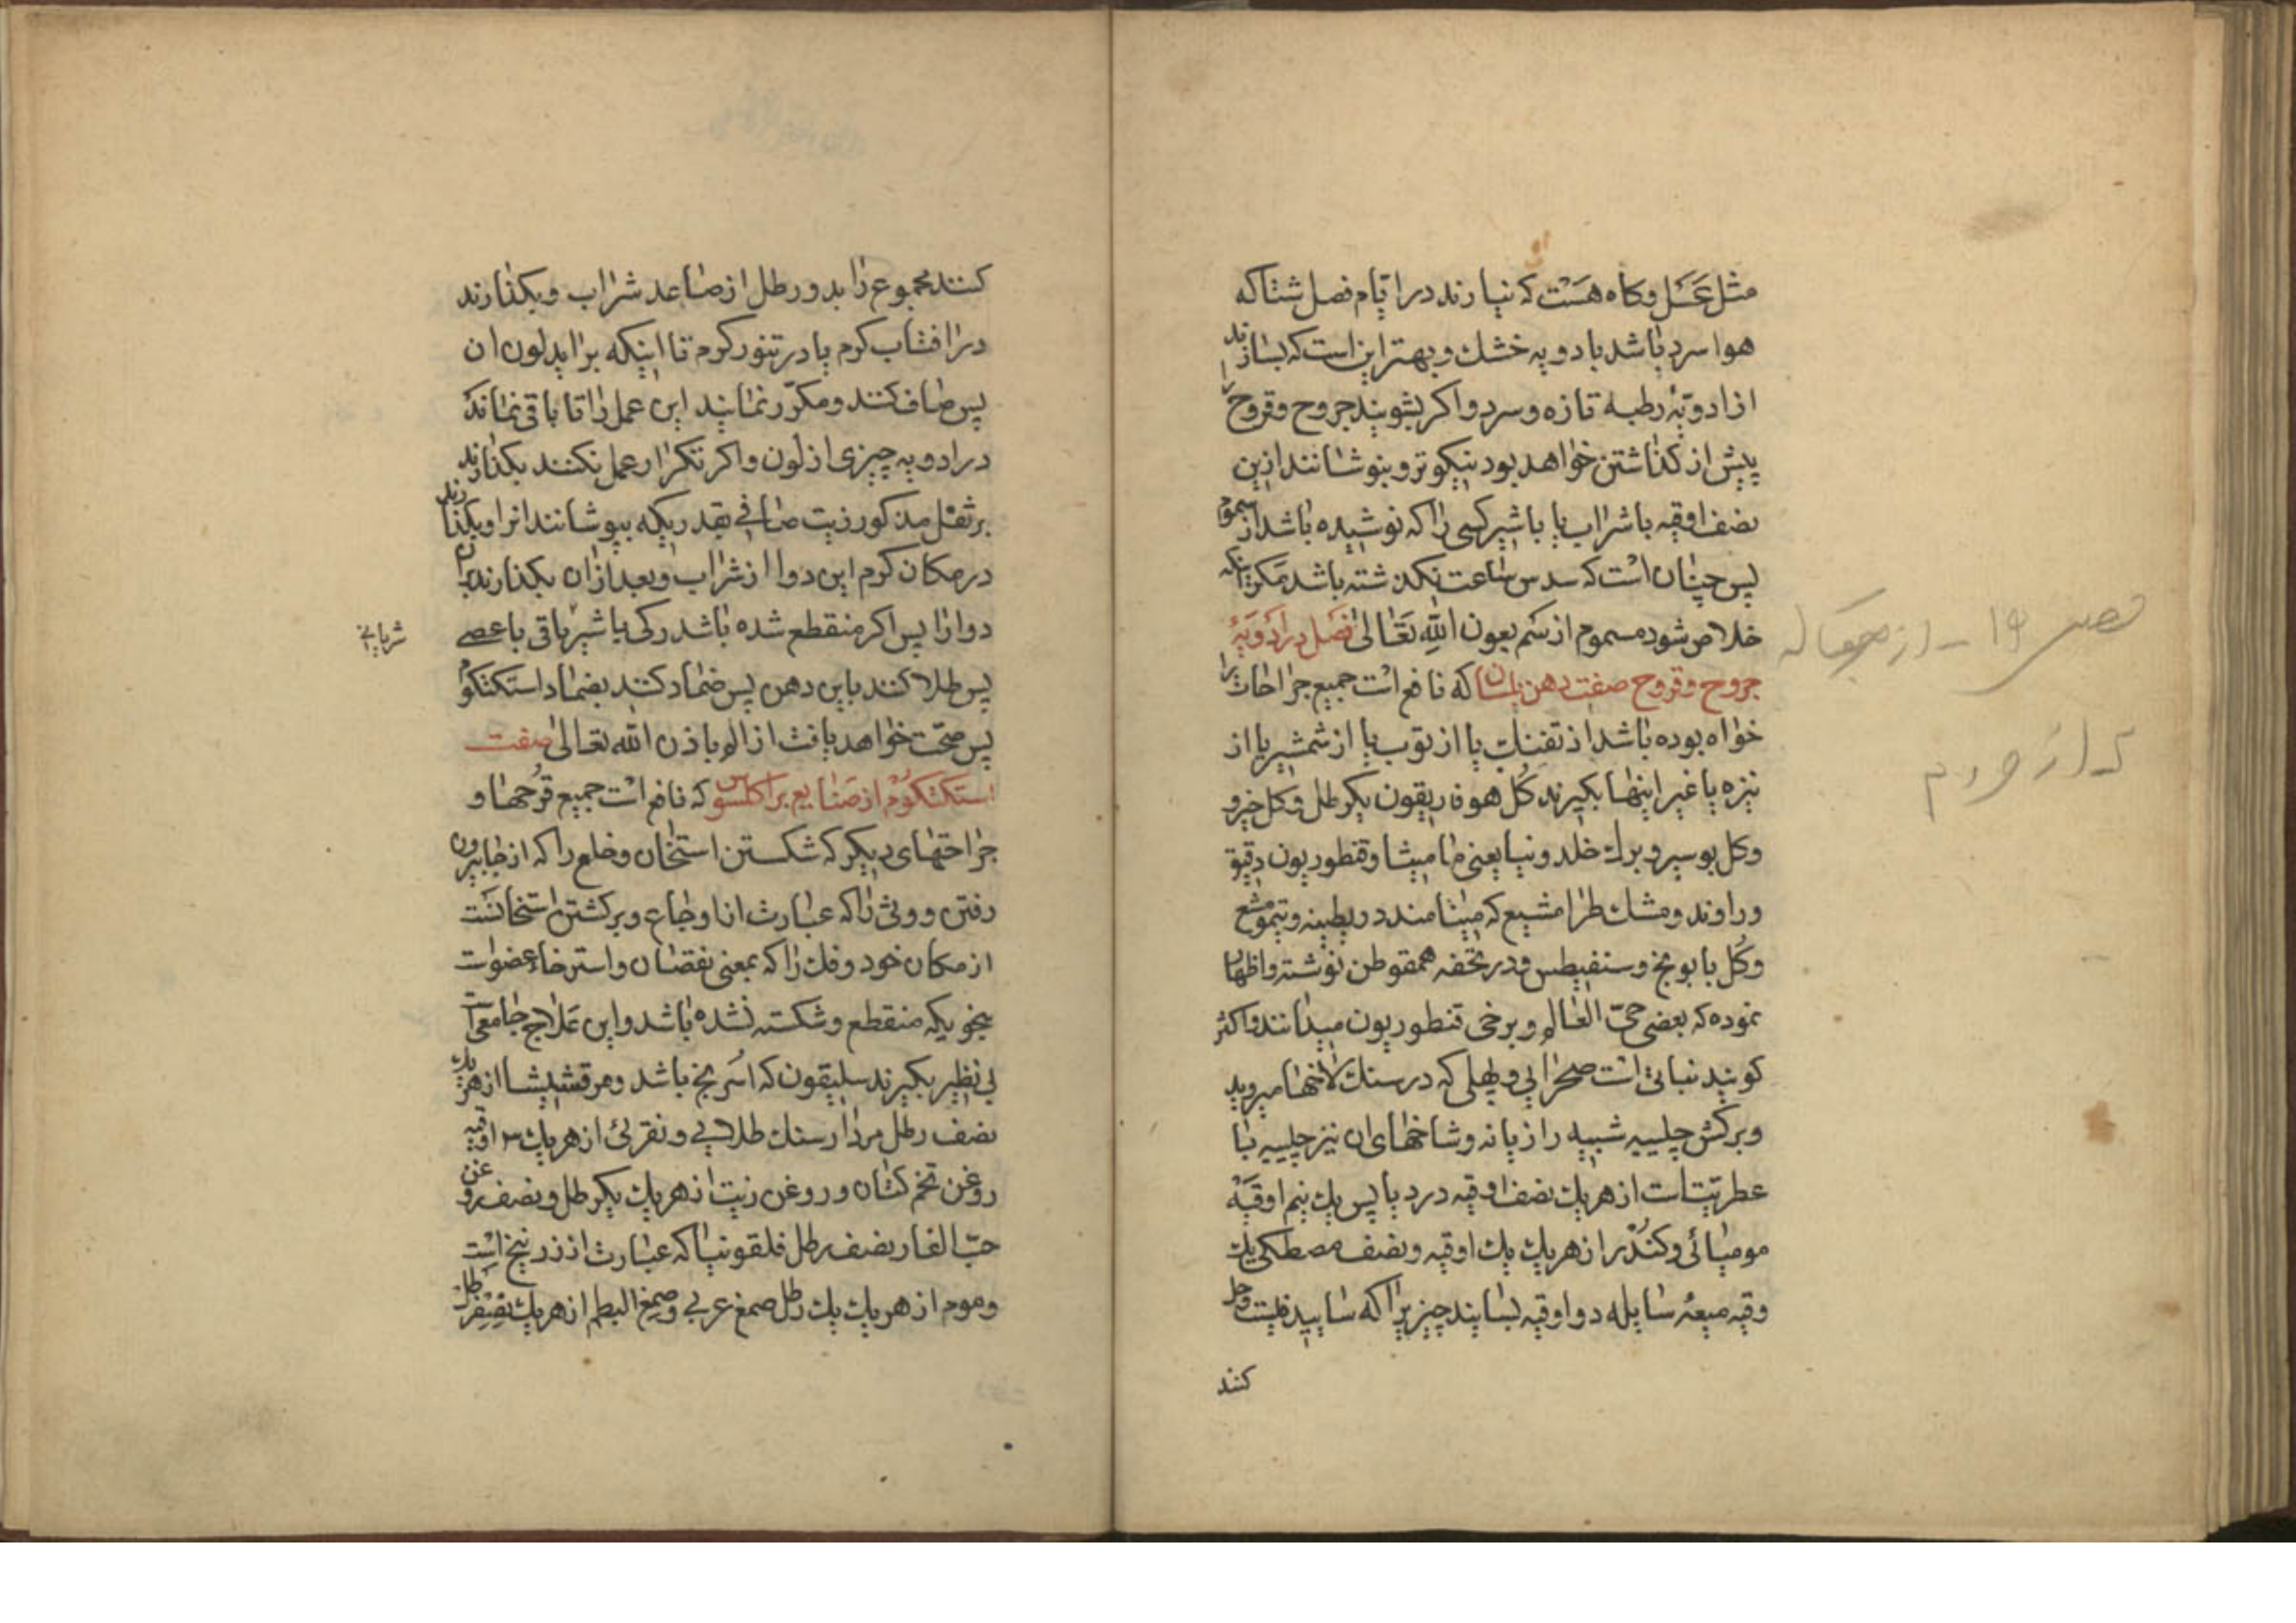 مثل عسل و کاه هست که نیارند در ایام فصل شتا که
هوا سرد باشد بادویه خشک و بهتر این است که بسازند
از ادویهٔ رطبه تازه و سرد و اکر بشویند جروح و قروح را
پیش از کذاشتن خواهد بود نیکوتر و بنوشانند ازین
نصف اوقیه با شراب یا با شیر کسی را که نوشیده باشد از سموم
پس چنان است که سدس ساعت نکذشته باشد مکر اینکه
خلاص شود مسموم از سم بعون الله تعالی فصل در ادویهٔ
جروح و قروح صفت دهن بلسان که نافع است جمیع جراحات را
خواه بوده باشد از تفنک یا از توپ یا از شمشیر یا از
نیزه یا غیر اینها بکیرند کل هوفاریقون یکرطل و کل خیرو
و کل بوسیر و برک خلدونیا یعنی مامیثا و قنطوریون دقیق
و راوند و مشک طرامشیع که مینامند در بطینه
و کل بابونج و سنفیطس و در تحفه همقوطن نوشته و اظهار
نموده که بعضی حی العالم و برخی قنطوریون میدانند و اکثر
کویند نباتی است صحرائی و جبلی که در سنک لاخها میروید
و برکش چلیپه شبیه رازیانه و شاخهای ان نیز چلیپه با
عطریتست از هر یک نصف اوقیه درد یا پس یک نیم اوقیه
مومیائی و کندر از هر یک یک اوقیه و نصف مصطکی یک
وقیه میعهٔ سایله دو اوقیه بسایند چیزیرا که ساییدنیست و حل
کنند
کنند مجموع را بدو رطل از صاعد شراب و بکذارند
در افتاب کرم یا در تنور کرم تا اینکه براید لون ان
پس صاف کنند و مکرر نمایند این عمل را تا باقی نماند
در ادویه چیزی از لون و اکر تکرار عمل نکنند بکذارند
بر ثقل مذکور زیت صافی بقدریکه بپوشانند انرا و بکذارند
در مکان کرم این دوا از شراب و بعد ازان بکذارند
دوا را پس اکر منقطع شده باشد رکی یا شریانی یا عصبی
شریانی
پس طلا کنند باین دهن پس ضماد کنند بضماد استکتکوم
پس صحت خواهد یافت از الم باذن الله تعالی صفت
استکتکوم از صنایع براکلسوس که نافع است جمیع قرحها و
جراحتهای دیکر که شکستن استخان و خلع را که از جا بیرون
رفتن و وثی را که عبارت از اوجاع و برکشتن استخانست
از مکان خود و فک را که بمعنی نقصان و استرخاء عضو است
بنحویکه منقطع و شکسته نشده باشد و این علاج جامعی است
بی نظیر بکیرند سلیقون که اسرنج باشد و مرقشیشا از هر یک
نصف رطل مردارسنک طلایی و نقرئی از هر یک ۳ اوقیه
روغن تخم کتان و روغن زیت از هر یک یکرطل و نصف روغن
حب الغار نصف رطل قلقونیا که عبارت از زرنیخ است
و موم از هر یک یک رطل صمغ عربی و صمغ البطم از هر یک نصف رطل